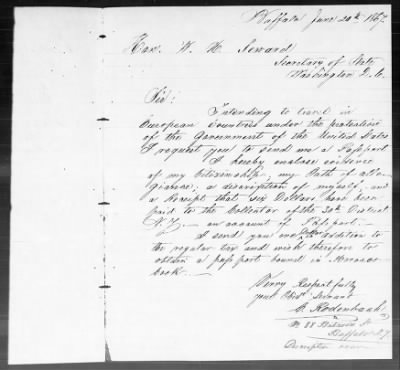 Buffalo June 20th 1867.
Hon. W. H. Seward
Secretary of State
Washington D.C.
Sir:
Intending to travel in
European Countries under the protection
of the Government of the United States
I request you to send me a Passport
I hereby enclose evidence
of my Citizenship; my Oath of alle-
giance; a discription of myself, and
a Receipt that six Dollars have been
paid to the Collector of the 30th District
N.Y. on account of Passport.
I send you one Dollar addition to
the regular tax and wish therefore to
obtain a passport bound in Morocco
book.
Verry Respectfully
your Obdt Servant
C. Rodenbach
No 88
Buffalo N.Y.
Description